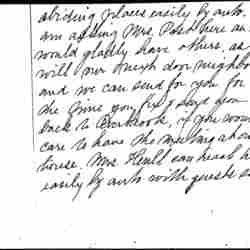 abiding places easily by auto.
am asking Mrs. Post here as
would gladly have others, as
will our next door neighbor
and we can send for you for
the time you
back to Burbrook, if you wou
care to have the meeting a hou
house. Mrs. Heull can reach h
easily by auto with guests so